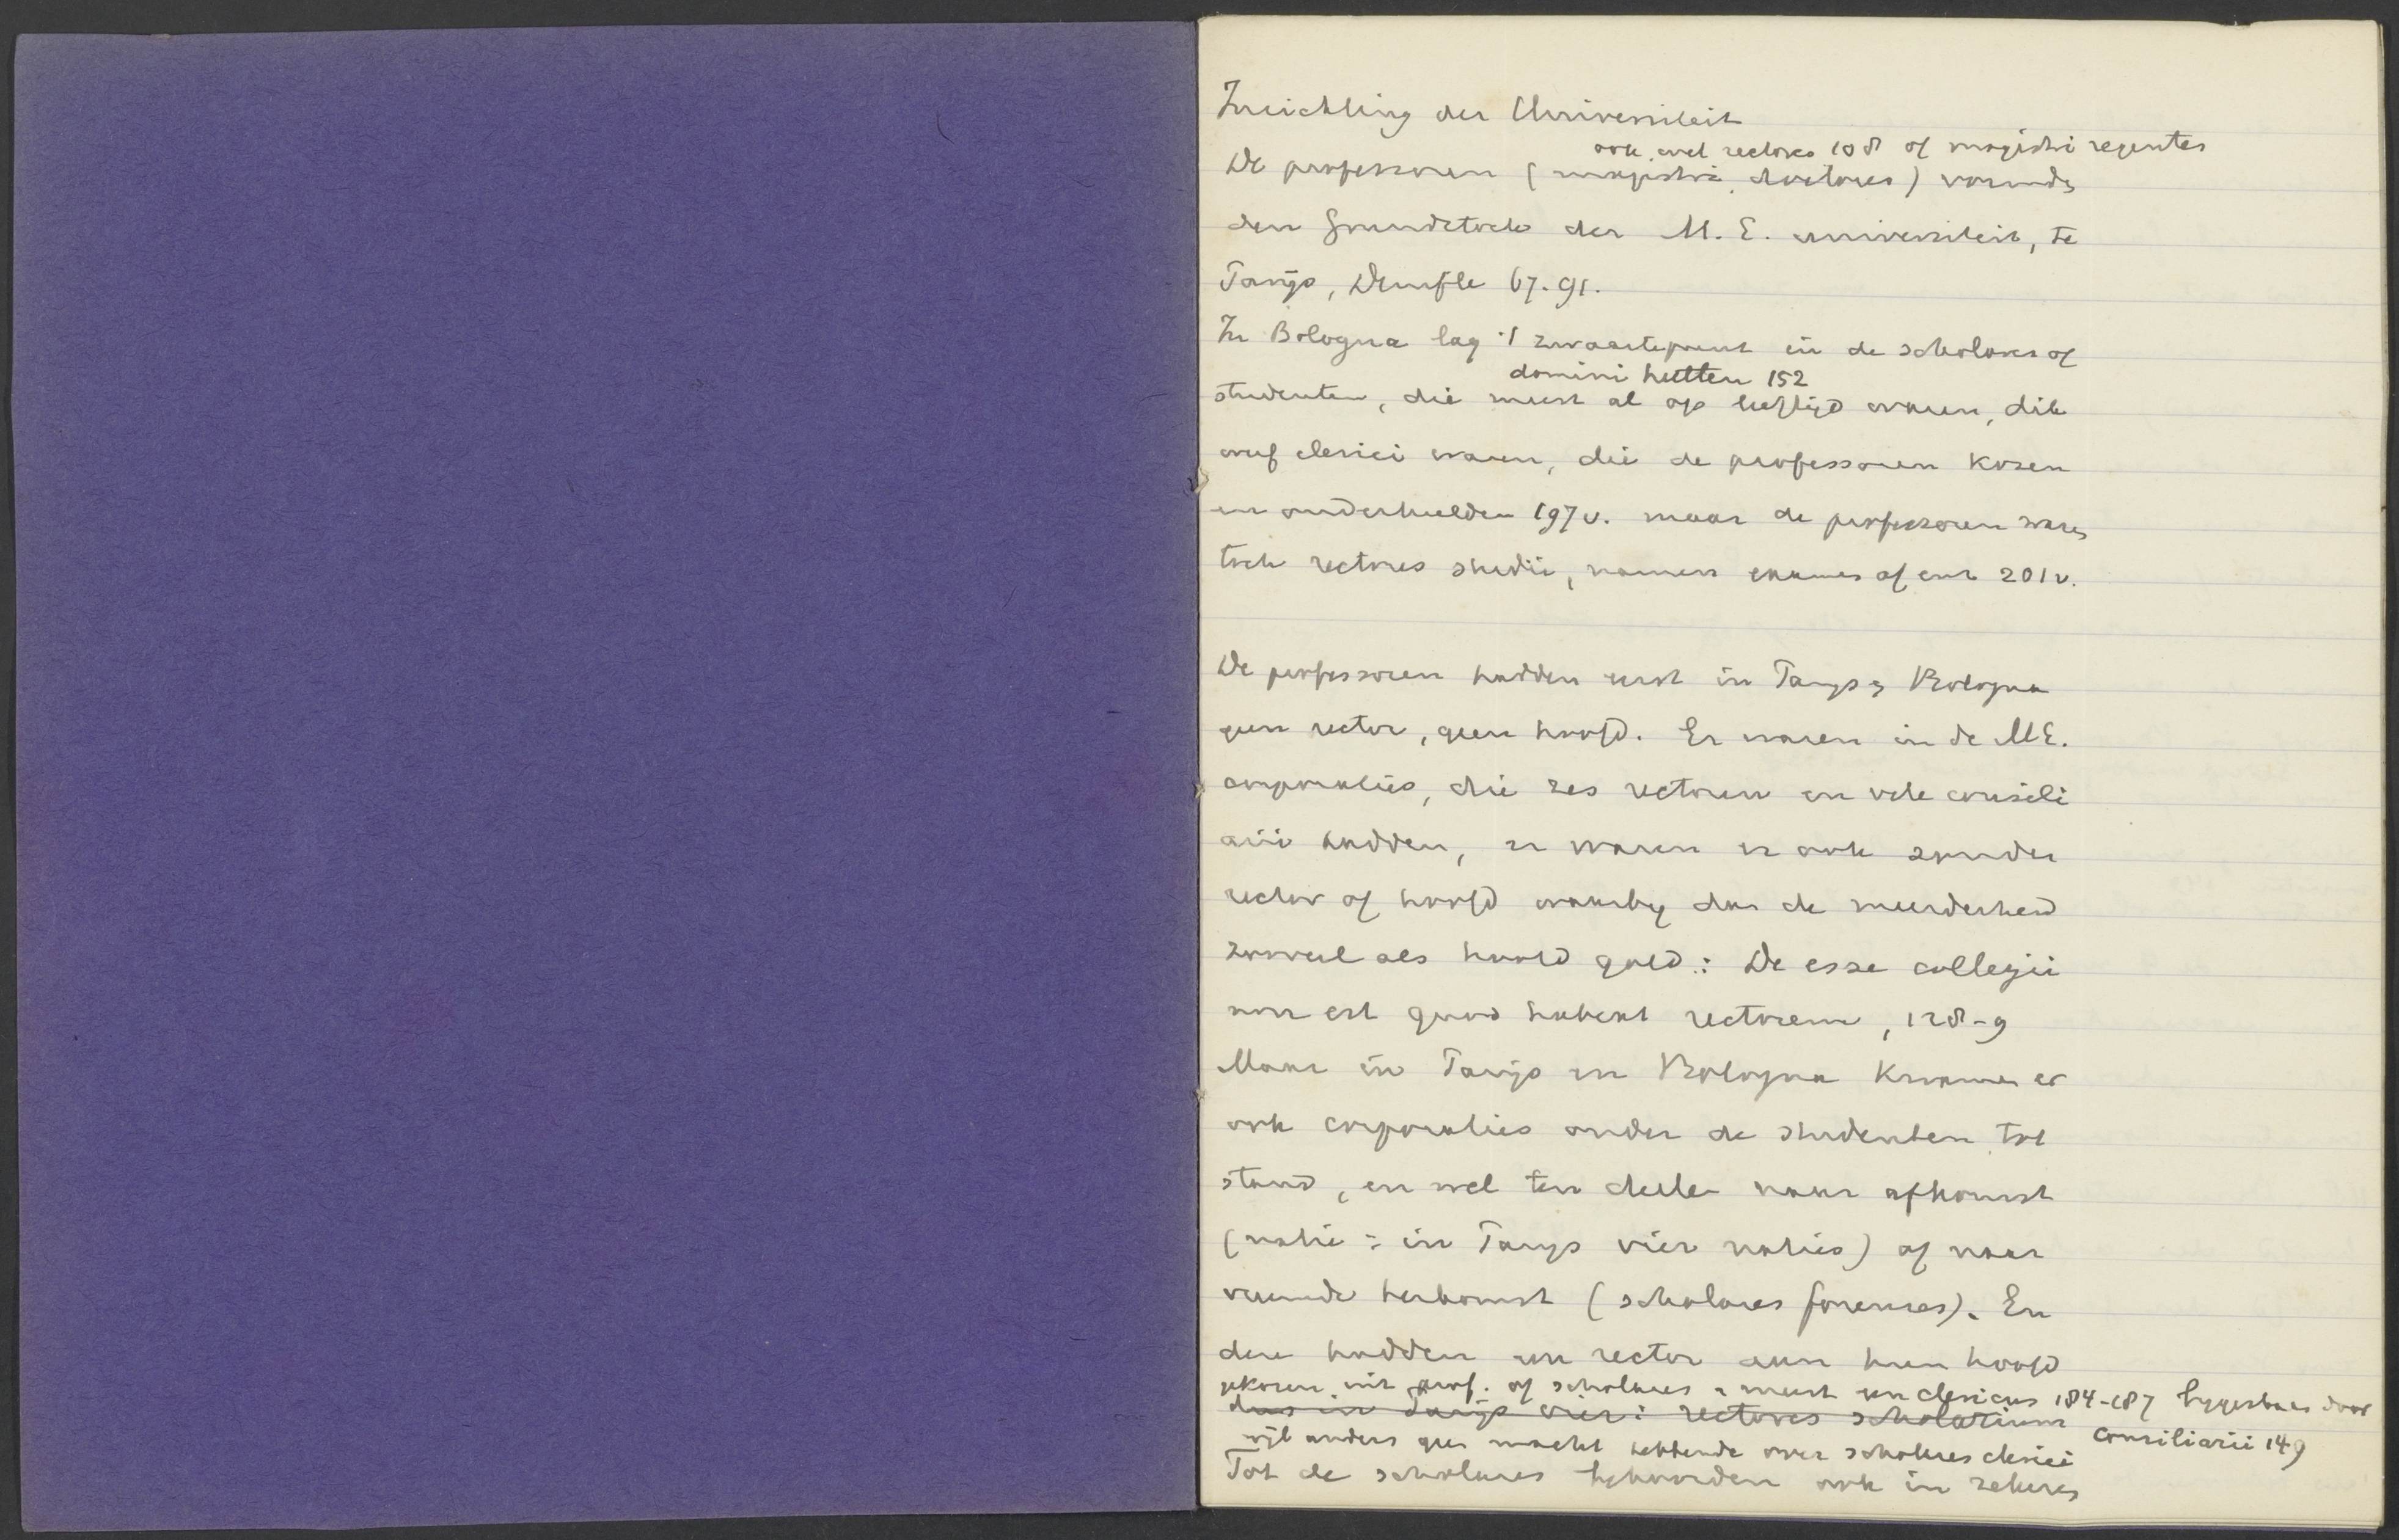 Inrichting der Universiteit
ook wel rectores 108 of magistri regentes
De professoren (magistri, doctores) vormden
den Grundstock der M.E. universiteit, te
Parijs, Denifle 67. 91.
In Bologna lag 't zwaartepunt in de scholares of
domini heetten 152
studenten, die meest al op leeftijd waren, dik
werf clerici waren, die de professoren kozen
en onderhielden 197 v. maar de professoren waren
toch rectores studii, namen examens af enz 201 v.
De professoren hadden eerst in Parijs en Bologna
geen rector, geen hoofd. Er waren in de M.E.
corporaties, die zes rectoren en vele consili
arii hadden, er waren er ook zonder
rector of hoofd waarbij dan de meerderheid
zooveel als hoofd gold: De esse collegii
non est quod habeat rectorem, 128-9
Maar in Parijs en Bologna kwamen er
ook corporaties onder de studenten tot
stand, en wel ten deele naar afkomst
(natie : in Parijs vier naties) of naar
vreemde herkomst (scholares forenses). En
deze hadden een rector aan hun hoofd
gekozen uit prof. of scholares, meest een clericus 184-187 bijgestaan door
dus in Parijs vier: rectores scholarium
consiliarii 149
wijl anders geen macht hebbende over scholares clerici
Tot de scholares behoorden ook in zekeren